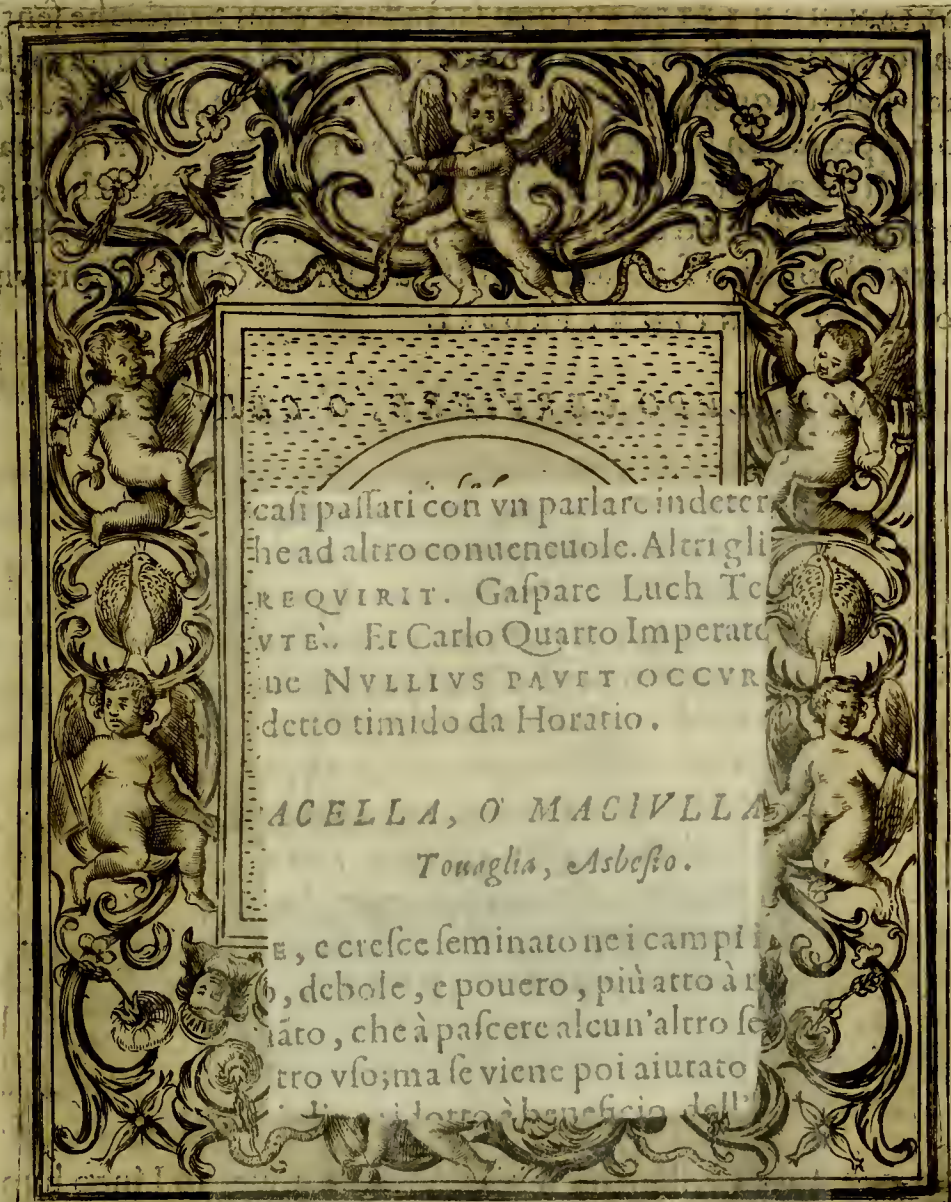 casi passati con vn parlare indeter
he ad altro conueneuole. Altri gli
REQVIRIT. Gaspare Luch Te
VTE. Et Carlo Quarto Imperato
ue NVLLIVS PAVET OCCVR
detto timido da Horatio.
ACELLA, O MACIVLLA
Touaglia, Asbesto.
E, e cresce seminato ne i campi i
o, debole, e pouero, più atto à r
nãto, che à pascere alcun'altro se
tro vso; ma se viene poi aiutato
ridotto à beneficio dell'